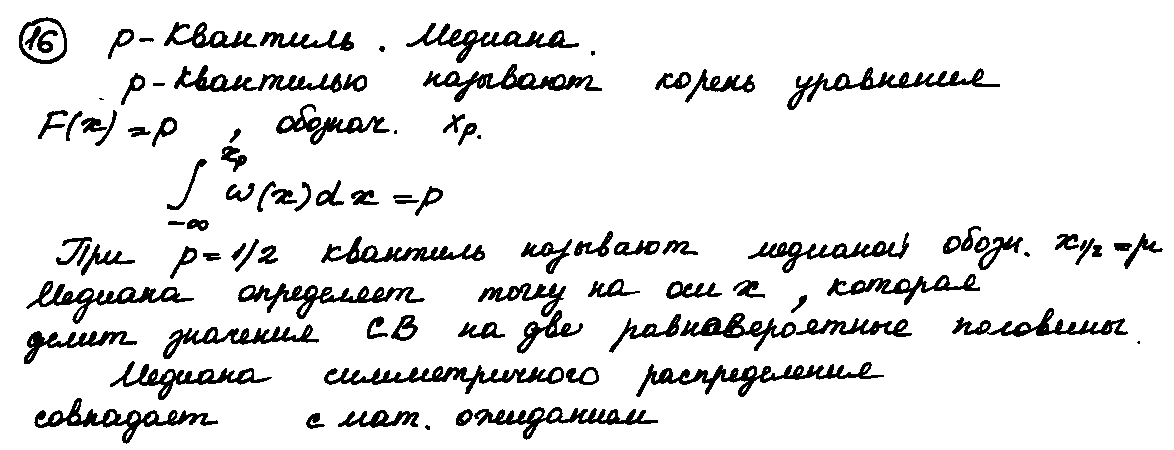 16 p-Квантиль. Медиана.
p-Квантилью называют корень уравнения
F(x) = p, обознач. xp.
∫ от -∞ до xp ω(x)dx = p
При p = 1/2 квантиль называют медианой обозн. x1/2 = μ
Медиана определяет точку на оси x, которая
делит значения СВ на две равновероятные половины.
Медиана симметричного распределения
совпадает с мат. ожиданием